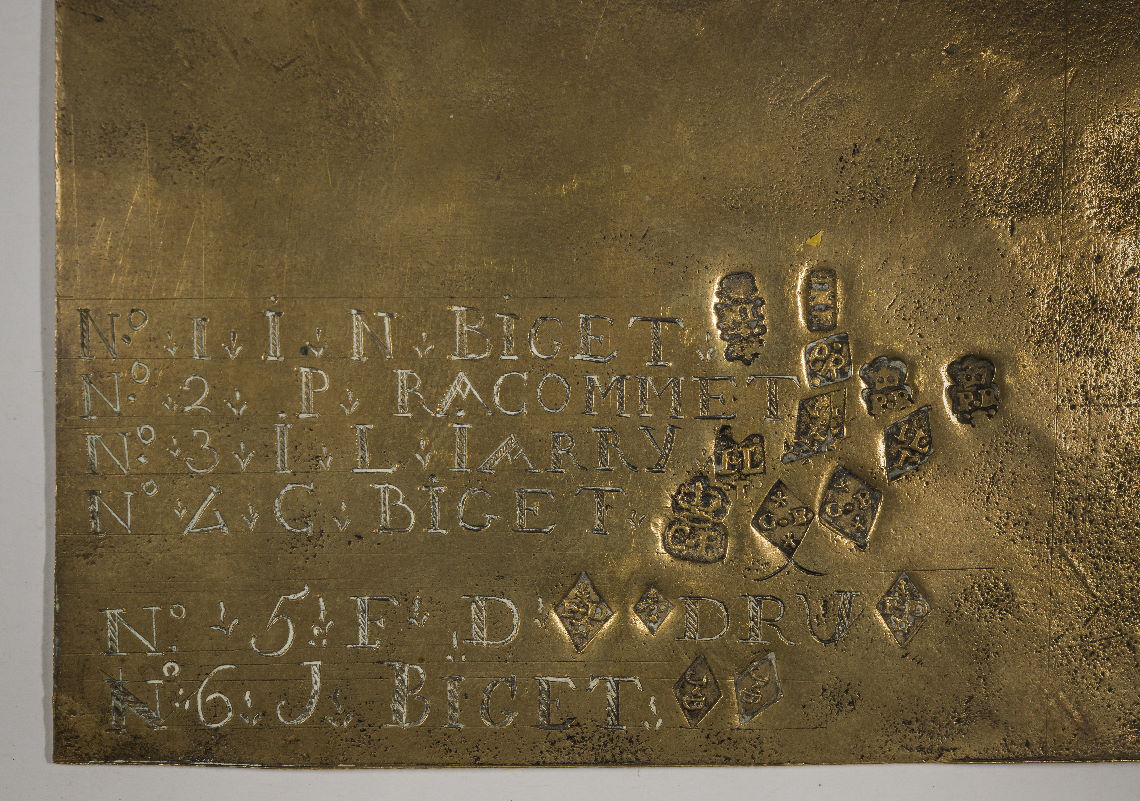 Nº 1 İ N BİGET
Nº 2 P RACOMMET
Nº 3 İ L İARRY
Nº 4 G BİGET
Nº 5 F D DRU
Nº 6 J BİGET